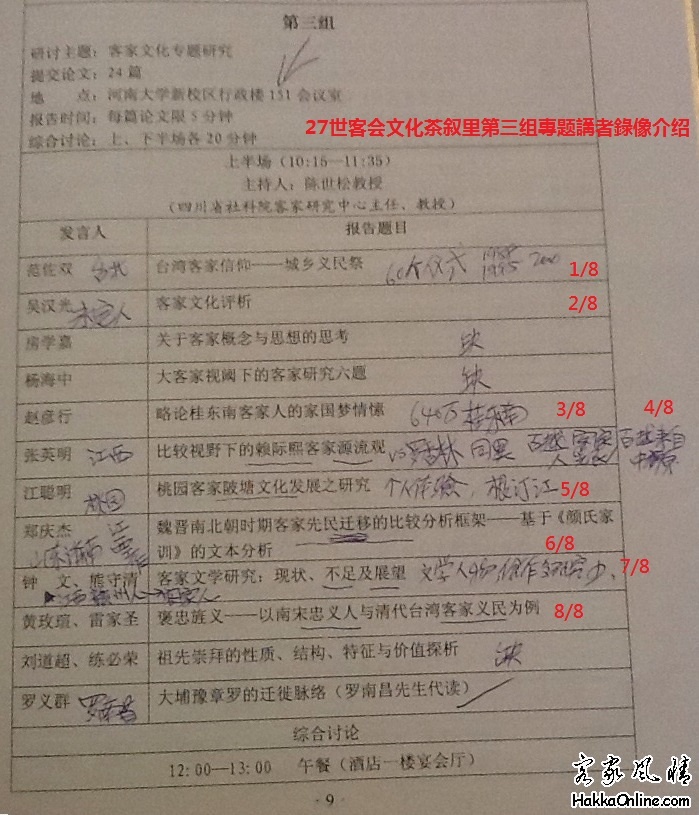 第三组
研讨主题：客家文化专题研究
提交论文：24 篇
地　　点：河南大学新校区行政楼 151 会议室
报告时间：每篇论文限 5 分钟
综合讨论：上、下半场各 20 分钟
27世客会文化茶叙里第三组專题講者錄像介绍
上半场（10:15—11:35）
主持人：陈世松教授
（四川省社科院客家研究中心主任、教授）
发言人 报告题目
范佐双 台北 台湾客家信仰——城乡义民祭 60个仪式 1988 1995 2000 1/8
吴汉光 客家文化评析 2/8
房学嘉 关于客家概念与思想的思考 缺
杨海中 大客家视阈下的客家研究六题 缺
赵彦行 略论桂东南客家人的家国梦情愫 640万 桂东南 3/8 4/8
张英明 江西 比较视野下的赖际熙客家源流观 vs 罗香林 同異 百越 百越来自中原
江聪明 桃园 桃园客家陂塘文化发展之研究 个人体验，根汀江 5/8
郑庆杰 魏晋南北朝时期客家先民迁移的比较分析框架——基于《颜氏家
训》的文本分析 6/8
钟　文、熊守清 客家文学研究：现状、不足及展望 文学人物 7/8
黄玫瑄、雷家圣 褒忠旌义——以南宋忠义人与清代台湾客家义民为例 8/8
刘道超、练必荣 祖先崇拜的性质、结构、特征与价值探析 缺
罗义群 大埔豫章罗的迁徙脉络（罗南昌先生代读）
综合讨论
12:00—13:00　午餐（酒店一楼宴会厅）
· 9 ·
客家风情
HakkaOnline.com